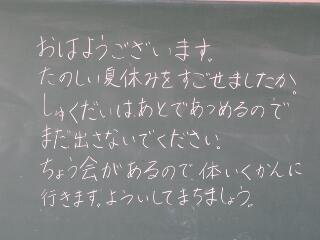 おはようございます。
たのしい夏休みをすごせましたか。
しゅくだいは、あとであつめるので
まだ出さないでください。
ちょう会があるので、体いくかんに
行きます。よういしてまちましょう。